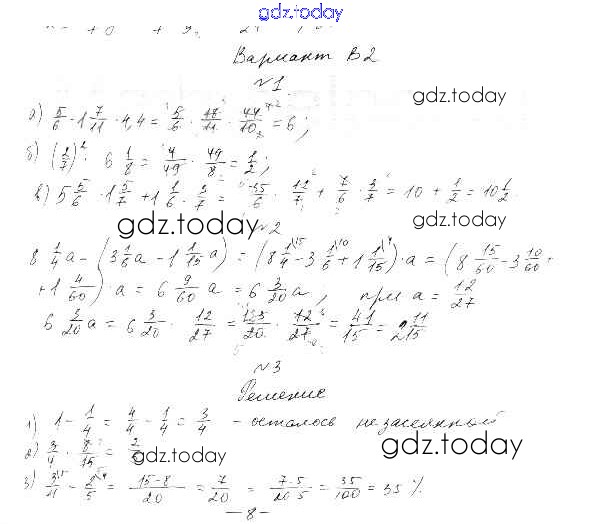 gdz.today
Вариант В2
№1
gdz.today
а) 5/6 · 1 7/11 · 4,4 = 5/6 · 18/11 · 44/10 = 6;
б) (2/7)² · 6 1/8 = 4/49 · 49/8 = 1/2;
в) 5 5/6 · 1 5/7 + 1 1/6 · 3/7 = 35/6 · 12/7 + 7/6 · 3/7 = 10 + 1/2 = 10 1/2
gdz.today gdz.today
№2
8 1/4 a - (3 1/6 a - 1 1/15 a) = (8 1/4 - 3 1/6 + 1 1/15) · a = (8 15/60 - 3 10/60 +
+ 1 4/60) · a = 6 9/60 a = 6 3/20 a, при a = 12/27
6 3/20 a = 6 3/20 · 12/27 = 123/20 · 12/27 = 41/15 = 2 11/15
№3
Решение
1) 1 - 1/4 = 4/4 - 1/4 = 3/4 - осталось незасеянный
2) 3/4 · 8/15 = 2/5
gdz.today gdz.today
3) 3/4 - 2/5 = 15-8/20 = 7/20 = 7·5/20·5 = 35/100 = 35 %.
- 8 -